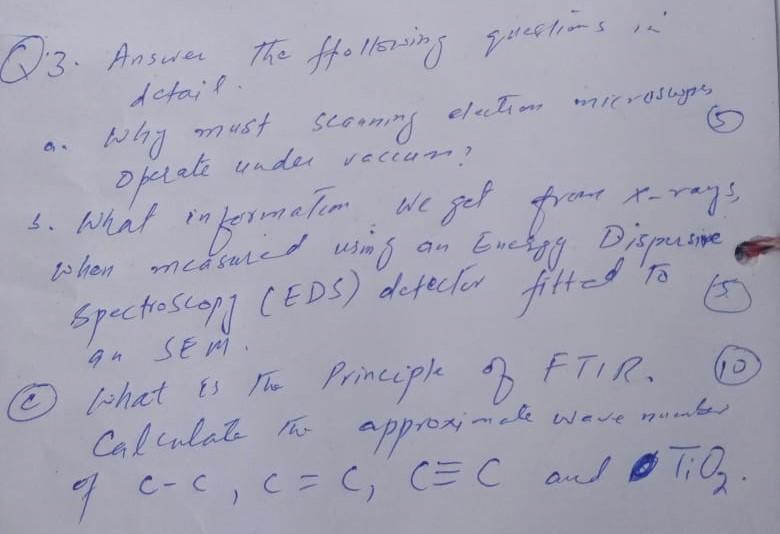 Q3. Answer the ffollowing questions in
detail.
a. Why must scanning electron microscopes
operate under vaccum? (5)
b. What information we get from x-rays,
when measured using an Energy Dispersive
Spectroscopy (EDS) detector fitted to
an SEM. (5)
(c) What is the Principle of FTIR. (10)
Calculate the approximate wave number
of C-C, C=C, C≡C and TiO₂.